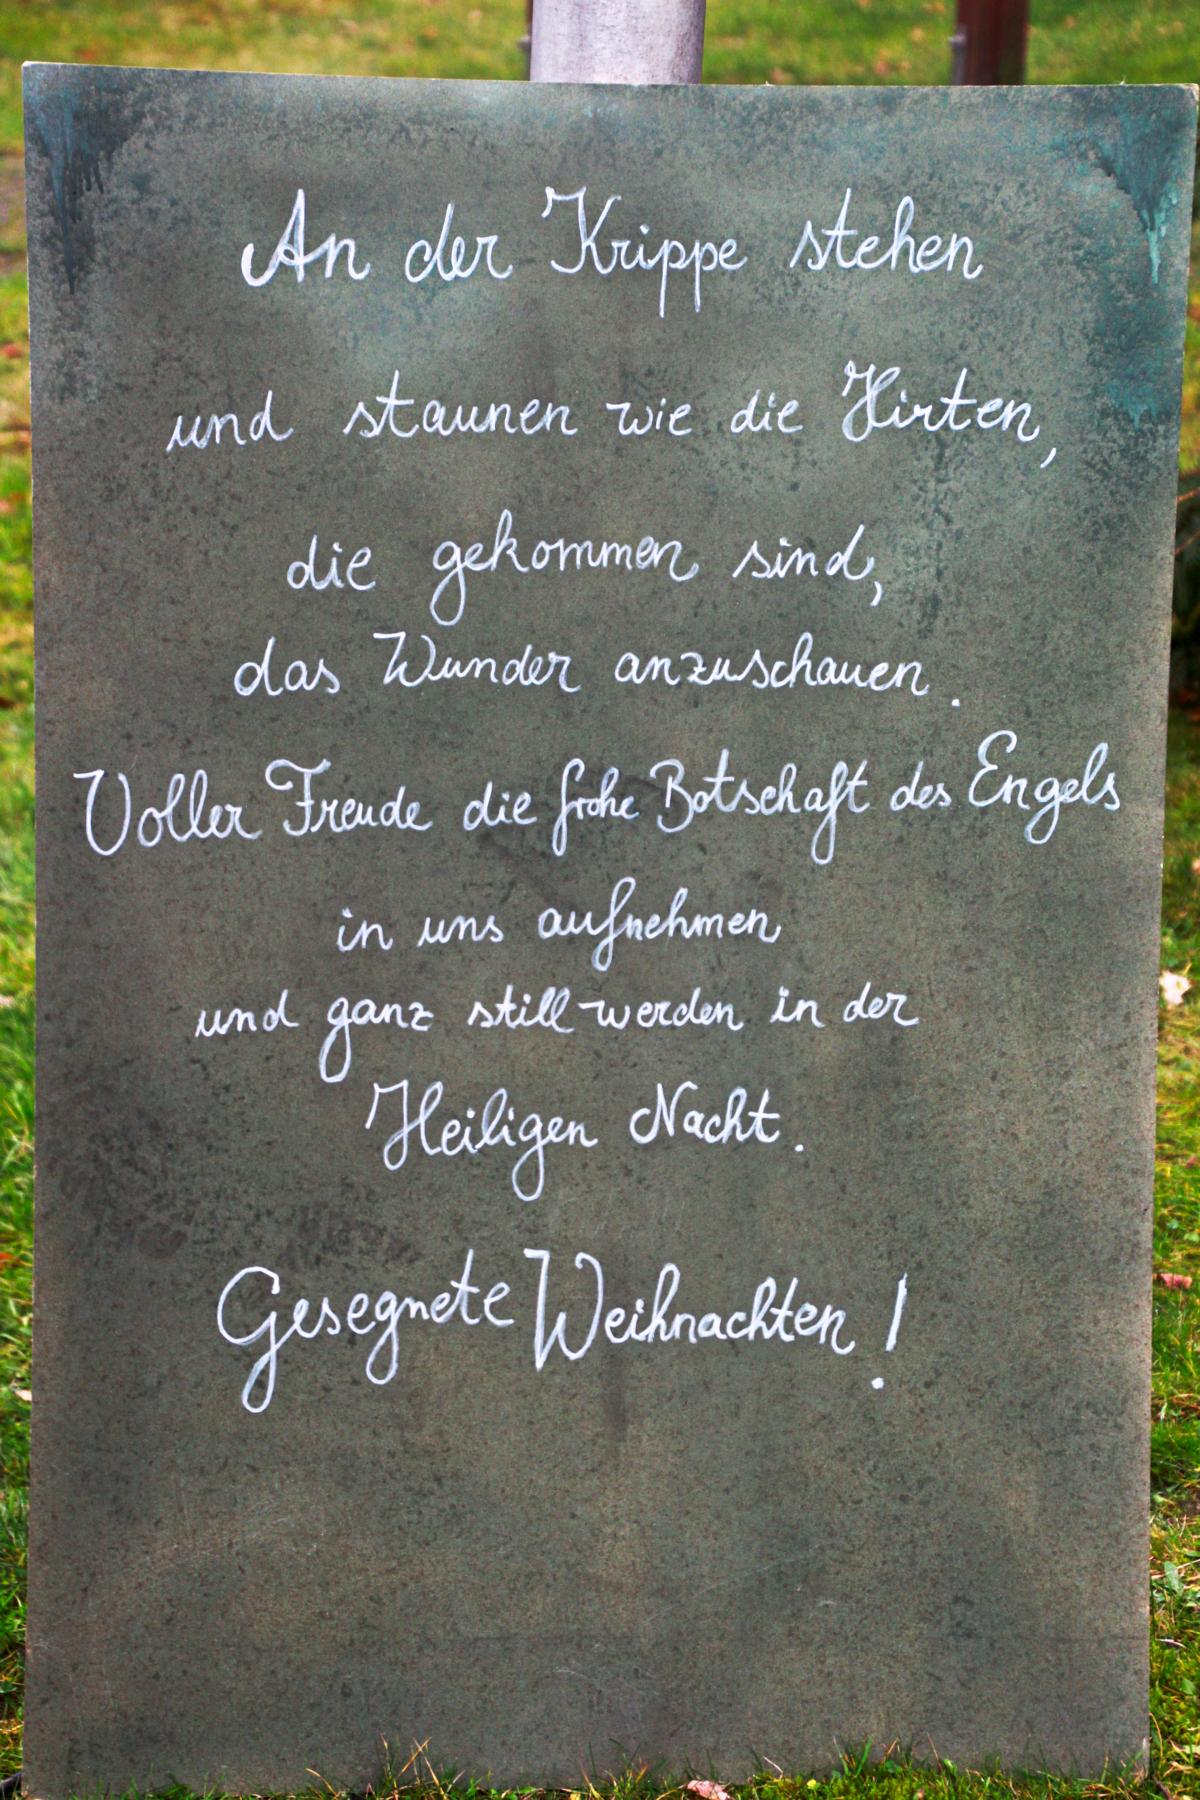 An der Krippe stehen
und staunen wie die Hirten,
die gekommen sind,
das Wunder anzuschauen.
Voller Freude die frohe Botschaft des Engels
in uns aufnehmen
und ganz still werden in der
Heiligen Nacht.
Gesegnete Weihnachten!